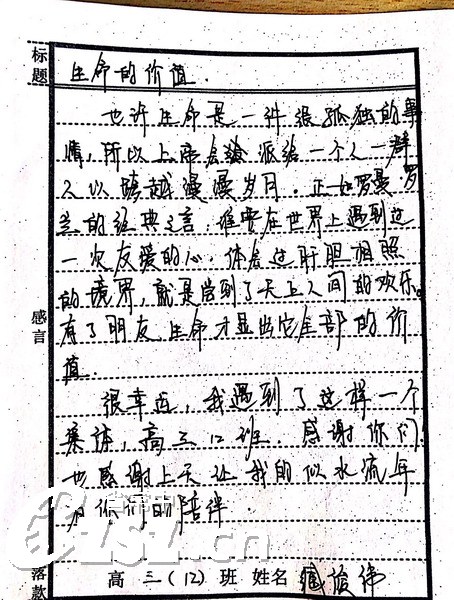 标题
生命的价值.
也许生命是一件很孤独的事
情,所以上帝会给派给一个人一群
人以跨越漫漫岁月。正如罗曼罗
兰的经典之言:谁要在世界上遇到过
一次友爱的心,体会过肝胆相照
的境界,就是尝到了天上人间的欢乐。
感言
有了朋友,生命才显出它全部的价
值.
很幸运,我遇到了这样一个
集体,高三12班 感谢你们
也感谢上天让我的似水流年
有你们的陪伴.
落款
高三(12)班 姓名